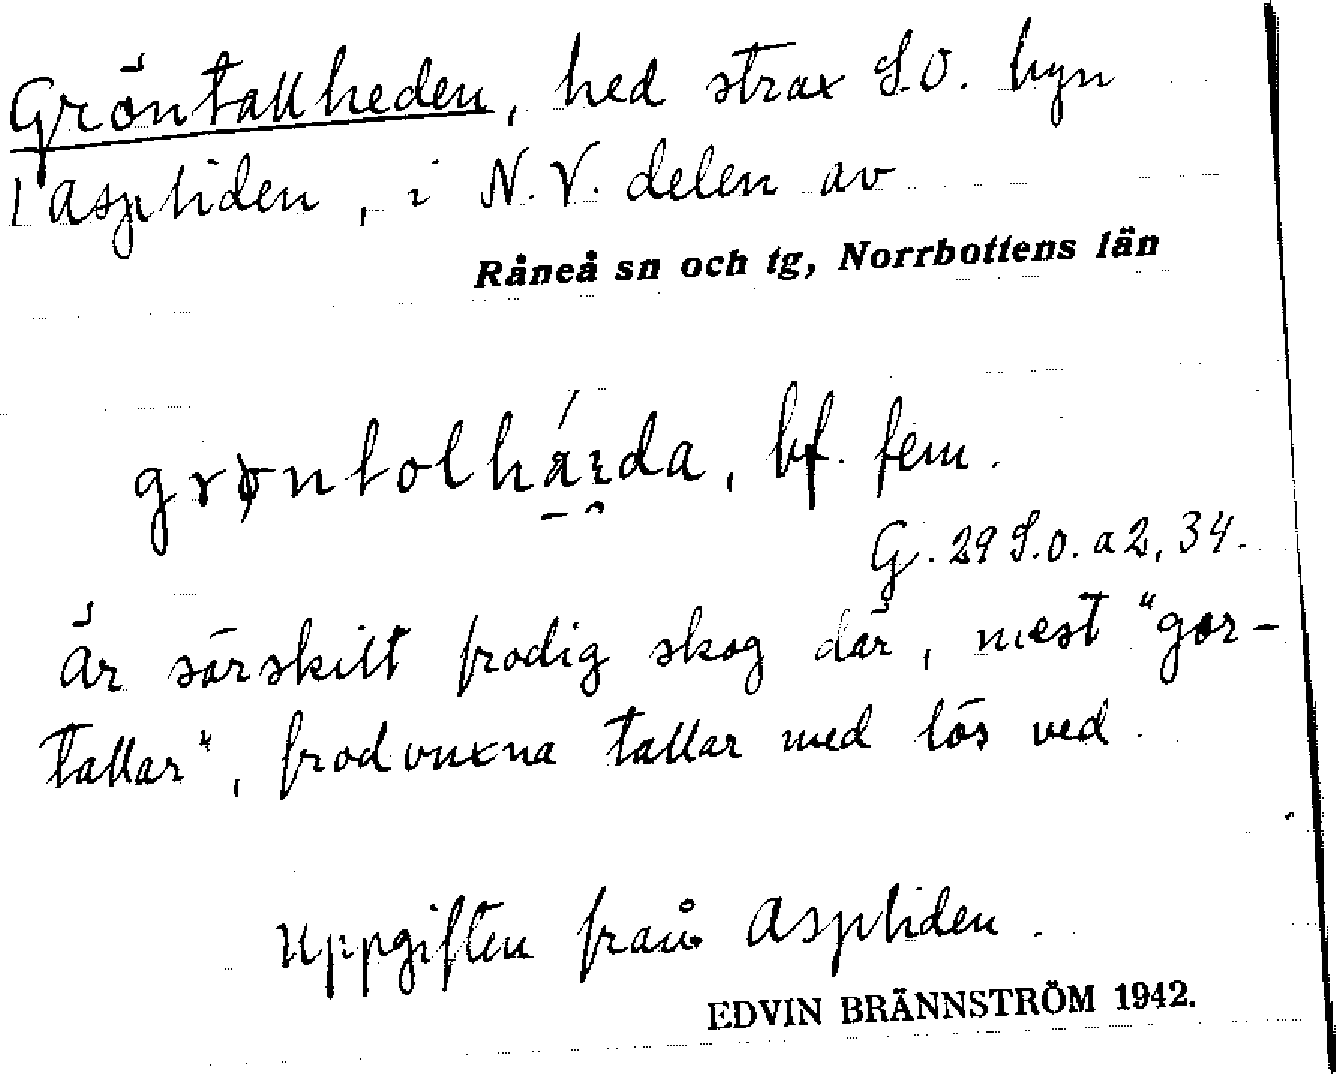 Gröntallheden, hed strax S.O. byn
Aspliden, i N.V. delen av
Råneå sn och tg, Norrbottens län
grøntolhá̱ı̯da, bf. fem.
G. 29 S.o. a 2, 34.
Är särskilt frodig skog där, mest "gor-
tallar", frodvuxna tallar med lös ved.
Uppgiften från Aspliden.
EDVIN BRÄNNSTRÖM 1942.